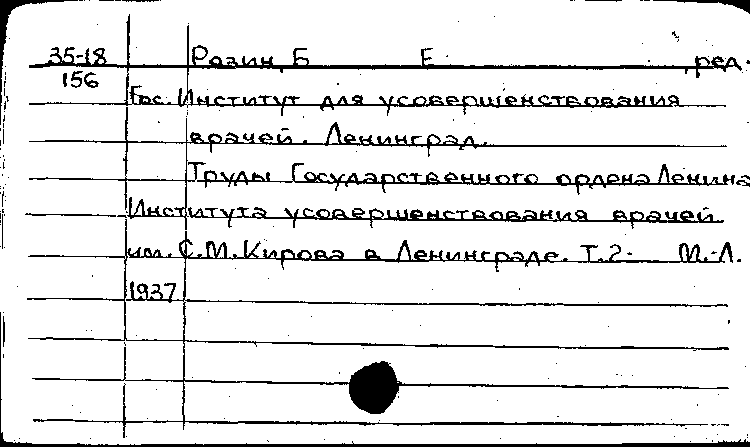 35-18 Розин, Б Е , ред.
156
Гос. Институт для усовершенствования
врачей. Ленинград.
Труды Государственного ордена Ленина
Института усовершенствования врачей
им. С.М. Кирова в Ленинграде. Т.2. М.-Л.
1937